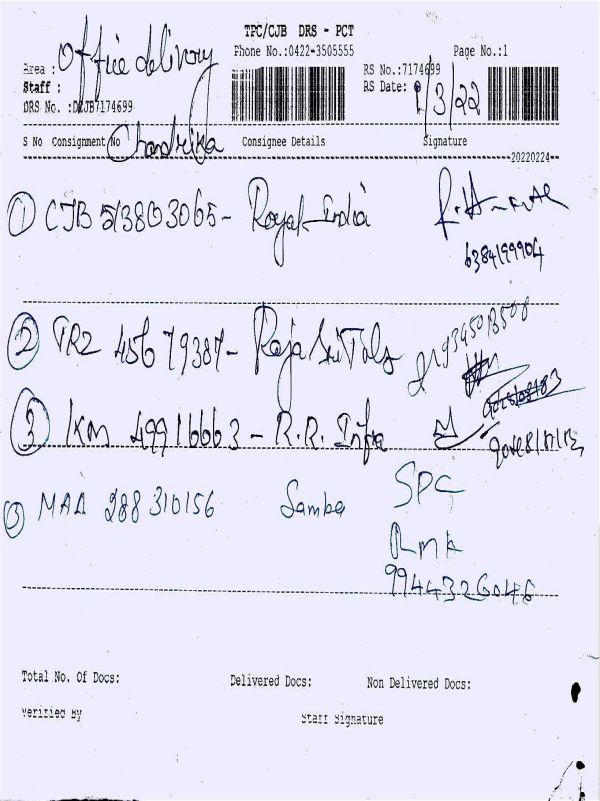 TPC/CJB DRS - PCT
Phone No.:0422-3505555 Page No.:1
Area : Office delivery
RS No.:7174699
Staff :
RS Date: 1/3/22
DRS No. :DCJB7174699
S No Consignment No Consignee Details Signature
Chandrika
20220224
① CJB 513803065 - Royal India
6384199904
② TRZ 45679387 - Raja
9345013508
③ KM 49916663 - R.R. Infra
③ MAA 288310156 Samba SPC
RMK
9944326046
Total No. Of Docs: Delivered Docs: Non Delivered Docs:
Verified By Staff Signature